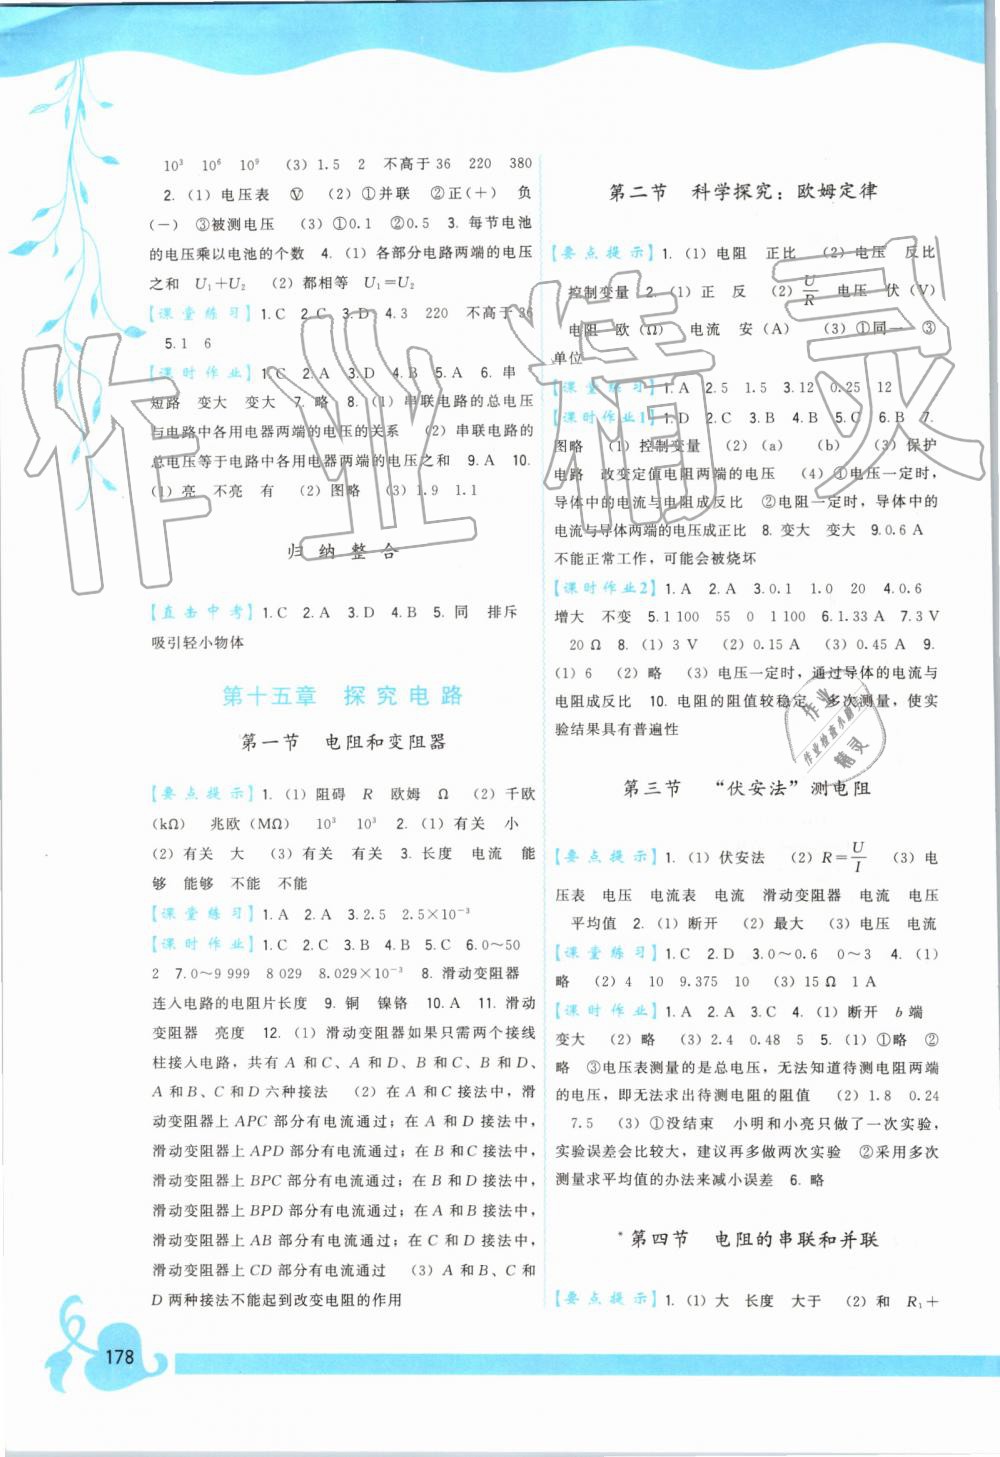 10³ 10⁶ 10⁹ (3)1.5 2 不高于36 220 380
2.(1)电压表 Ⓥ (2)①并联 ②正(+) 负
(-) ③被测电压 (3)①0.1 ②0.5 3.每节电池
的电压乘以电池的个数 4.(1)各部分电路两端的电压
之和 U₁+U₂ (2)都相等 U₁=U₂
【课堂练习】1.C 2.C 3.D 4.3 220 不高于36
5.1 6
【课时作业】1.C 2.A 3.D 4.B 5.A 6.串
短路 变大 变大 7.略 8.(1)串联电路的总电压
与电路中各用电器两端的电压的关系 (2)串联电路的
总电压等于电路中各用电器两端的电压之和 9.A 10.
(1)亮 不亮 有 (2)图略 (3)1.9 1.1
归纳整合
【直击中考】1.C 2.A 3.D 4.B 5.同 排斥
吸引轻小物体
第十五章 探究电路
第一节 电阻和变阻器
【要点提示】1.(1)阻碍 R 欧姆 Ω (2)千欧
(kΩ) 兆欧(MΩ) 10³ 10³ 2.(1)有关 小
(2)有关 大 (3)有关 有关 3.长度 电流 能
够 能够 不能 不能
【课堂练习】1.A 2.A 3.2.5 2.5×10⁻³
【课时作业】1.C 2.C 3.B 4.B 5.C 6.0～50
2 7.0～9 999 8 029 8.029×10⁻³ 8.滑动变阻器
连入电路的电阻片长度 9.铜 镍铬 10.A 11.滑动
变阻器 亮度 12.(1)滑动变阻器如果只需两个接线
柱接入电路,共有 A 和 C、A 和 D、B 和 C、B 和 D、
A 和 B、C 和 D 六种接法 (2)在 A 和 C 接法中,滑
动变阻器上 APC 部分有电流通过;在 A 和 D 接法中,
滑动变阻器上 APD 部分有电流通过;在 B 和 C 接法中,
滑动变阻器上 BPC 部分有电流通过;在 B 和 D 接法中,
滑动变阻器上 BPD 部分有电流通过;在 A 和 B 接法中,
滑动变阻器上 AB 部分有电流通过;在 C 和 D 接法中,
滑动变阻器上 CD 部分有电流通过 (3)A 和 B、C 和
D 两种接法不能起到改变电阻的作用
178
第二节 科学探究:欧姆定律
【要点提示】1.(1)电阻 正比 (2)电压 反比
控制变量 2.(1)正 反 (2)U/R 电压 伏(V)
电阻 欧(Ω) 电流 安(A) (3)①同一 ③
单位
【课堂练习】1.A 2.5 1.5 3.12 0.25 12
【课时作业1】1.D 2.C 3.B 4.B 5.C 6.B 7.
图略 (1)控制变量 (2)(a) (b) (3)保护
电路 改变定值电阻两端的电压 (4)①电压一定时,
导体中的电流与电阻成反比 ②电阻一定时,导体中的
电流与导体两端的电压成正比 8.变大 变大 9.0.6 A
不能正常工作,可能会被烧坏
【课时作业2】1.A 2.A 3.0.1 1.0 20 4.0.6
增大 不变 5.1 100 55 0 1 100 6.1.33 A 7.3 V
20 Ω 8.(1)3 V (2)0.15 A (3)0.45 A 9.
(1)6 (2)略 (3)电压一定时,通过导体的电流与
电阻成反比 10.电阻的阻值较稳定 多次测量,使实
验结果具有普遍性
第三节 “伏安法”测电阻
【要点提示】1.(1)伏安法 (2)R=U/I (3)电
压表 电压 电流表 电流 滑动变阻器 电流 电压
平均值 2.(1)断开 (2)最大 (3)电压 电流
【课堂练习】1.C 2.D 3.0～0.6 0～3 4.(1)
略 (2)4 10 9.375 10 (3)15 Ω 1 A
【课时作业】1.A 2.A 3.C 4.(1)断开 b 端
变大 (2)略 (3)2.4 0.48 5 5.(1)①略 ②
略 ③电压表测量的是总电压,无法知道待测电阻两端
的电压,即无法求出待测电阻的阻值 (2)1.8 0.24
7.5 (3)①没结束 小明和小亮只做了一次实验,
实验误差会比较大,建议再多做两次实验 ②采用多次
测量求平均值的办法来减小误差 6.略
*第四节 电阻的串联和并联
【要点提示】1.(1)大 长度 大于 (2)和 R₁+
作业精灵
作业
作业检查小助手
精灵